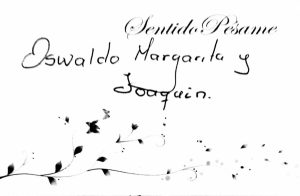 Sentido Pésame
Oswaldo Margarita y
Joaquin.